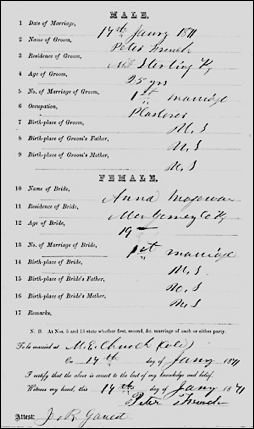 MALE.
1 Date of Marriage, 17th Jany 1871
2 Name of Groom, Peter French
3 Residence of Groom, Mt Sterling Ky
4 Age of Groom, 25 yrs
5 No. of Marriage of Groom, 1st marriage
6 Occupation, Plasterer
7 Birth-place of Groom, U.S
8 Birth-place of Groom's Father, U.S
9 Birth-place of Groom's Mother, U.S
FEMALE.
10 Name of Bride, Anna Magowan
11 Residence of Bride, Montgomery Co Ky
12 Age of Bride, 19
13 No. of Marriage of Bride, 1st marriage
14 Birth-place of Bride, U.S
15 Birth-place of Bride's Father, U.S
16 Birth-place of Bride's Mother, U.S
17 Remarks,
N. B. At Nos. 5 and 13 state whether first, second, &c. marriage of each or either party.
To be married at M.E. Church (Col)
On 17th day of Jany 1871
I certify that the above is correct to the best of my knowledge and belief.
Witness my hand, this 17th day of Jany 1871
Peter French
Attest: Jas R Garrett